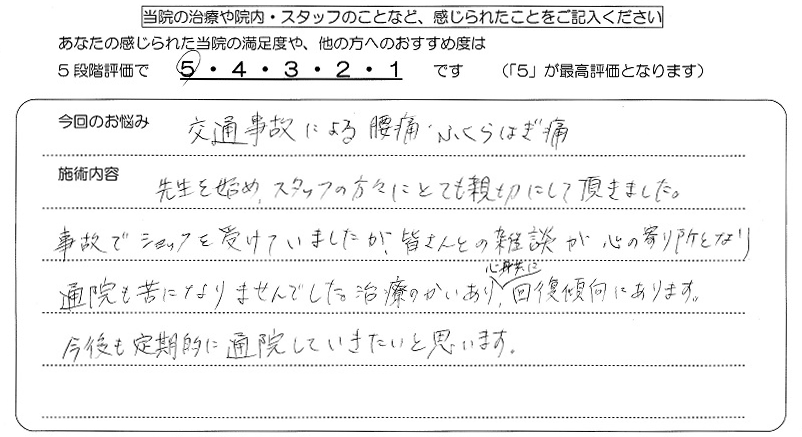 当院の治療や院内・スタッフのことなど、感じられたことをご記入ください
あなたの感じられた当院の満足度や、他の方へのおすすめ度は
5段階評価で 5・4・3・2・1 です (「5」が最高評価となります)
今回のお悩み 交通事故による腰痛・ふくらはぎ痛
施術内容 先生を始め、スタッフの方々にとても親切にして頂きました。
事故でショックを受けていましたが、皆さんとの雑談が心の寄り所となり
心身共に
通院も苦になりませんでした。治療のかいあり、回復傾向にあります。
今後も定期的に通院していきたいと思います。